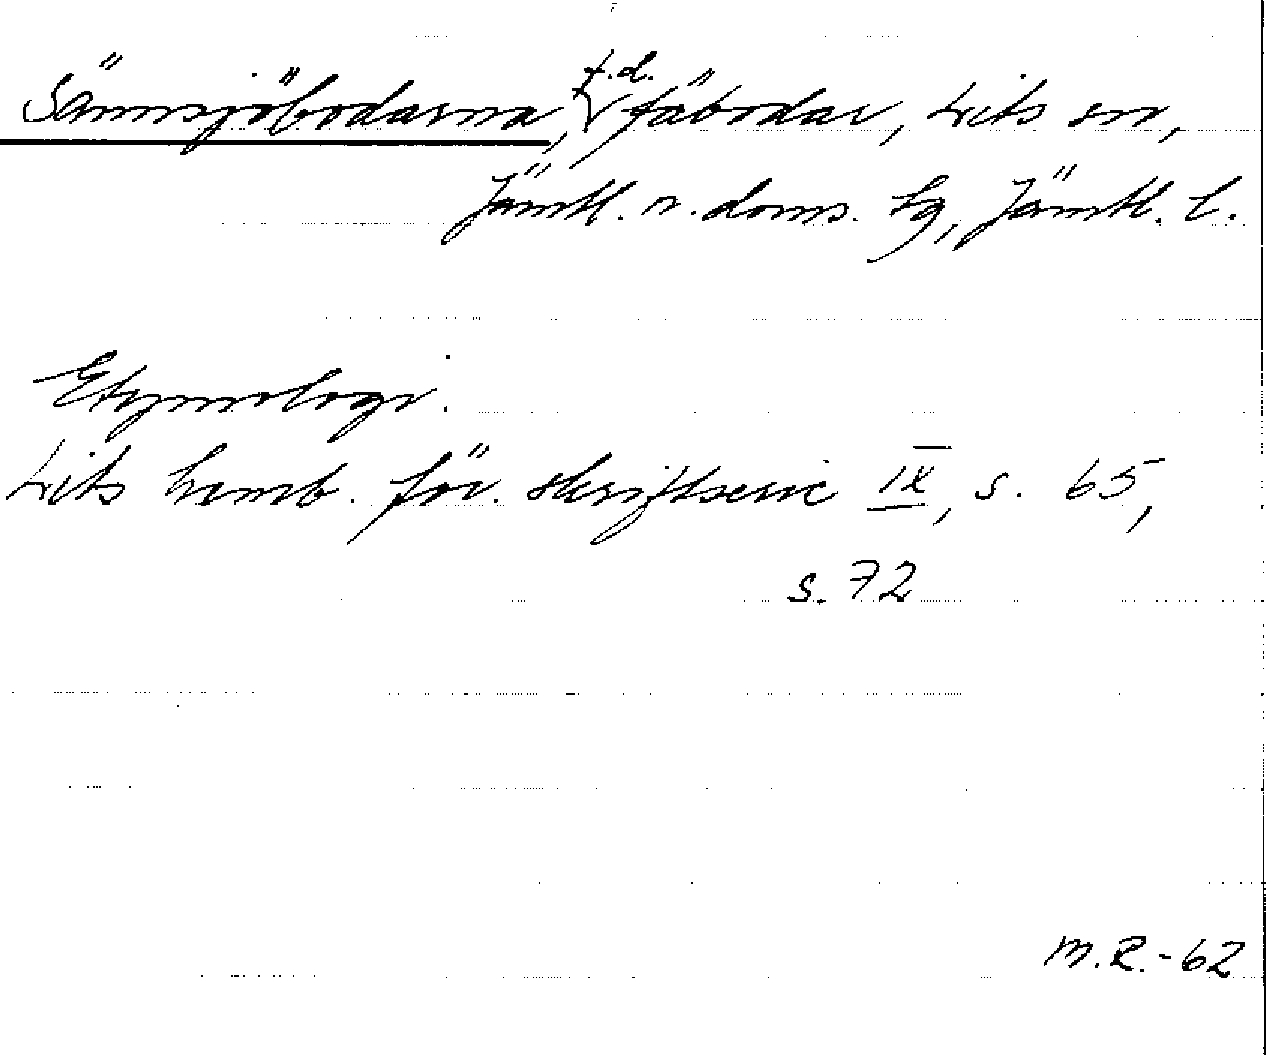 Sännsjöbodarna, f.d. fäbodar, Lits sn,
Jämtl. n. doms. tg, Jämtl. l.
Etymologi.
Lits hemb. för. skriftserie IX, s. 65,
s. 72
M.R.-62